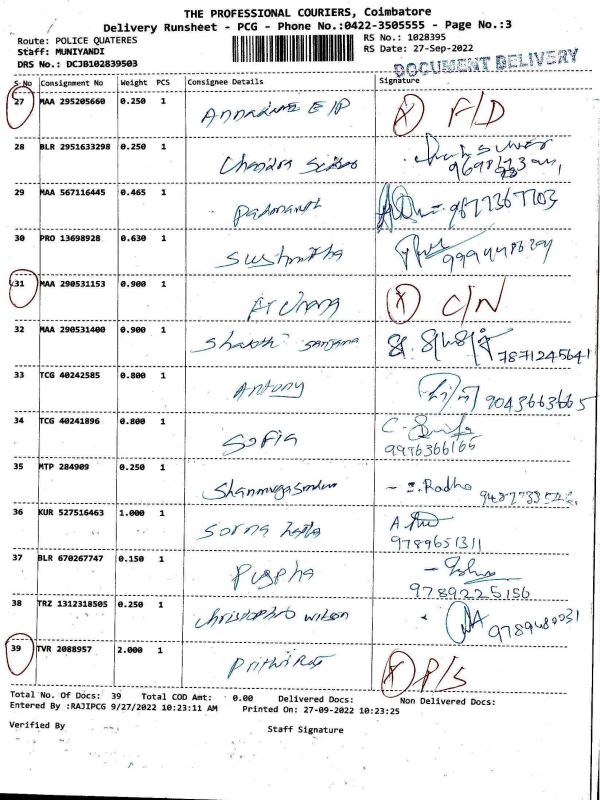 THE PROFESSIONAL COURIERS, Coimbatore
Delivery Runsheet - PCG - Phone No.:0422-3505555 - Page No.:3
Route: POLICE QUATERES RS No.: 1028395
Staff: MUNIYANDI RS Date: 27-Sep-2022
DRS No.: DCJB102839503
DOCUMENT DELIVERY
S.No Consignment No Weight PCS Consignee Details Signature
27 MAA 295205660 0.250 1 F/D
28 BLR 2951633298 0.250 1 Chandra
29 MAA 567116445 0.465 1 Padmanath
30 PRO 13698928 0.630 1 Sushmitha
31 MAA 290531153 0.900 1 Archana X C/N
32 MAA 290531400 0.900 1 Shakthi Sanjana 7871245641
33 TCG 40242585 0.800 1 Antony 9043663665
34 TCG 40241896 0.800 1 Sofia 9976366165
35 MTP 284909 0.250 1 Radha
36 KUR 527516463 1.000 1 9789651311
37 BLR 670267747 0.150 1 Puspha 9789225156
38 TRZ 1312318505 0.250 1 Wilson
39 TVR 2088957 2.000 1 X P/S
Total No. Of Docs: 39 Total COD Amt: 0.00 Delivered Docs: Non Delivered Docs:
Entered By :RAJIPCG 9/27/2022 10:23:11 AM Printed On: 27-09-2022 10:23:25
Verified By Staff Signature